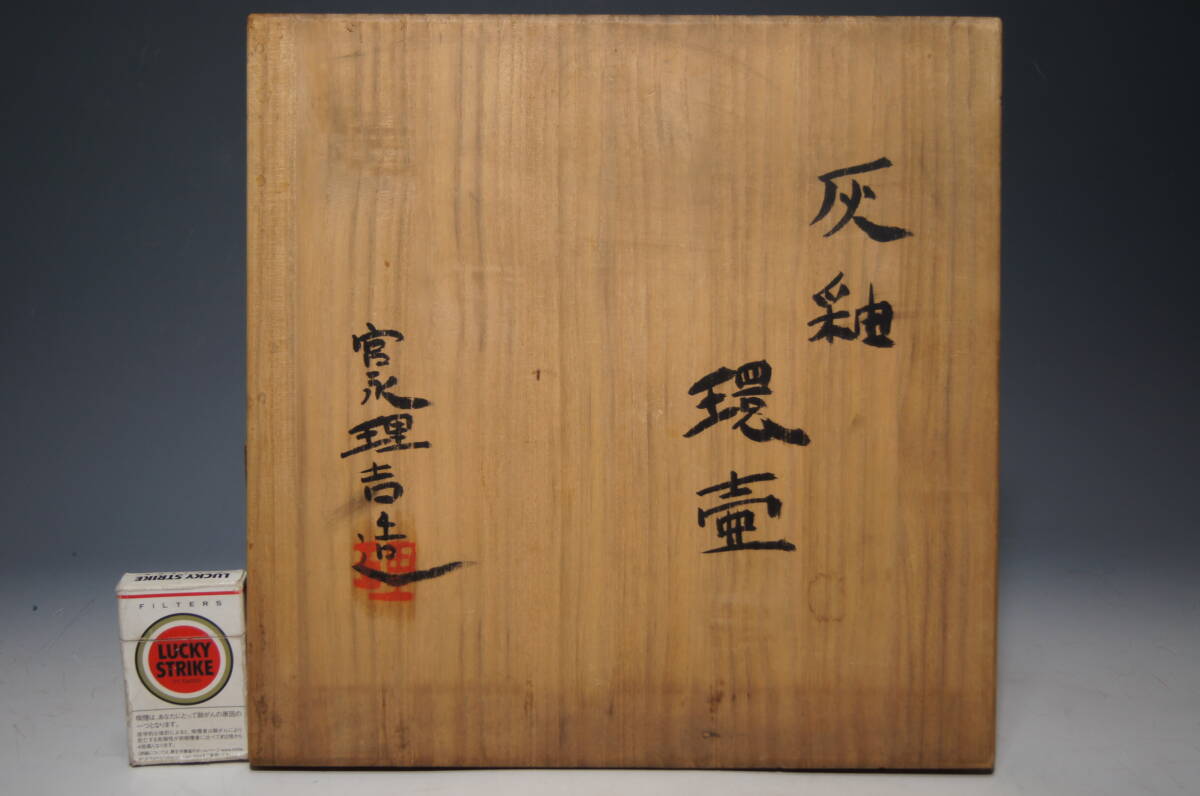 灰釉
環壷
宮永理吉造
理
LUCKY STRIKE
FILTERS
LUCKY
STRIKE
喫煙は、あなたにとって肺がんの原因の
一つとなります。